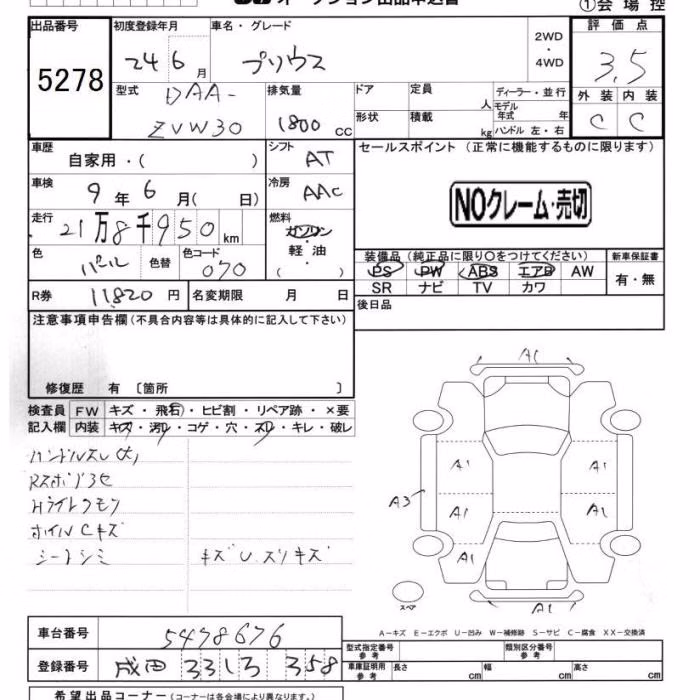 ①会場控
オークション出品申込書
出品番号
5278
初度登録年月
24 6 月
車名・グレード
プリウス
2WD
・
4WD
評価点
3.5
型式
DAA-
ZVW30
排気量
1800 cc
ドア
定員
人
形状
積載
kg
ディーラー・並行
モデル
年式 年
ハンドル 左・右
外装 内装
C C
車歴
自家用・( )
シフト
AT
セールスポイント (正常に機能するものに限ります)
車検
9 年 6 月( 日)
冷房
AAC
NOクレーム・売切
走行
21万8千950 km
燃料
ガソリン
・
軽油
( )
色
パール
色替
色コード
070
装備品 (純正品に限り○をつけてください)
PS PW ABS エアB AW
SR ナビ TV カワ
新車保証書
有・無
R券 11820 円
名変期限 月 日
後日品
注意事項申告欄(不具合内容等は具体的に記入して下さい)
修復歴 有 〔箇所 〕
検査員 FW キズ・飛石・ヒビ割・リペア跡・×要
記入欄 内装 キズ・汚レ・コゲ・穴・スレ・キレ・破レ
ハンドルスレ大
Hライトクモリ
ホイルCキズ
シートシミ
キズU.スリキズ
A1
A1 A1
A3
A1 A1
A1
A1
スペア
A-キズ E-エクボ U-凹み W-補修跡 S-サビ C-腐食 XX-交換済
車台番号 5478676
型式指定番号
参考
類別区分番号
参考
登録番号 成田 331 ろ 358
車庫証明用
参考
長さ cm 幅 cm 高さ cm
希望出品コーナー (コーナーは各会場により異なります。)